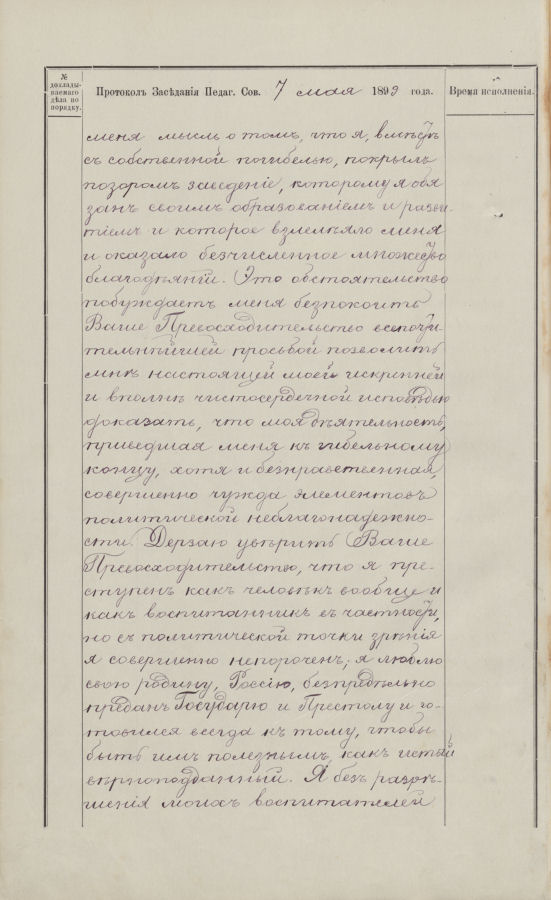 № докладываемаго дѣла по порядку.
Протоколъ Засѣданія Педаг. Сов. 7 мая 1893 года.
Время исполненія.
меня мысль о томъ, что я, вмѣстѣ
съ собственной погибелью, покрылъ
позоромъ заведеніе, которому я обя
занъ своимъ образованіемъ и разви-
тіемъ и которое взлелѣяло меня
и оказало безчисленное множество
благодѣяній. Это обстоятельство
побуждаетъ меня безпокоить
Ваше Превосходительство всепочти
тельнѣйшей просьбой позволить
мнѣ настоящей моей искренней
и вполнѣ чистосердечной исповѣдью
доказать, что моя дѣятельность,
приведшая меня къ гибельному
концу, хотя и безнравственная,
совершенно чужда элементовъ
политической неблагонадежно-
сти. Дерзаю увѣрить Ваше
Превосходительство, что я пре-
ступенъ какъ человѣкъ вообще и
какъ воспитанникъ въ частности,
но съ политической точки зрѣнія
я совершенно непороченъ; я люблю
свою родину, Россію, безпредѣльно
преданъ Государю и Престолу и го-
товился всегда къ тому, чтобы
быть имъ полезнымъ, какъ истый
вѣрноподданный. Я безъ разрѣ-
шенія моихъ воспитателей